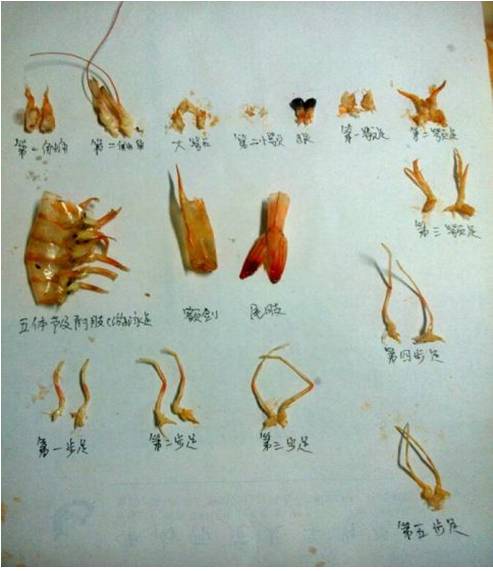 第一触角
第二触角
大颚
第二小颚
眼
第一颚足
第二颚足
第三颚足
五体节及附肢(游泳足
额剑
尾肢
第四步足
第一步足
第二步足
第三步足
第五步足